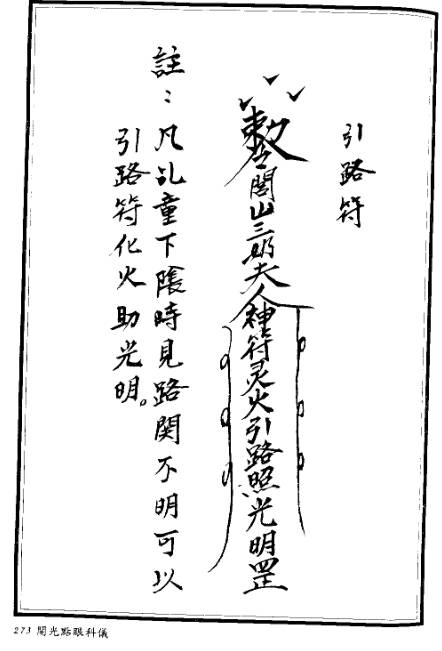 引路符
敕令閭山三奶夫人神符灵火引路照光明罡
註：凡乩童下陰時見路関不明可以
引路符化火助光明。
273 開光點眼科儀